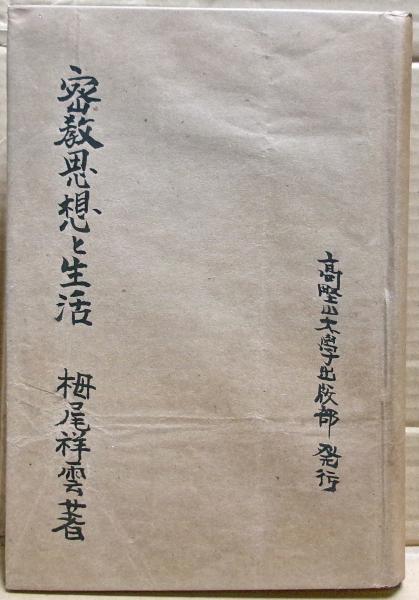 高野山大學出版部 発行
密教思想と生活
栂尾祥雲著